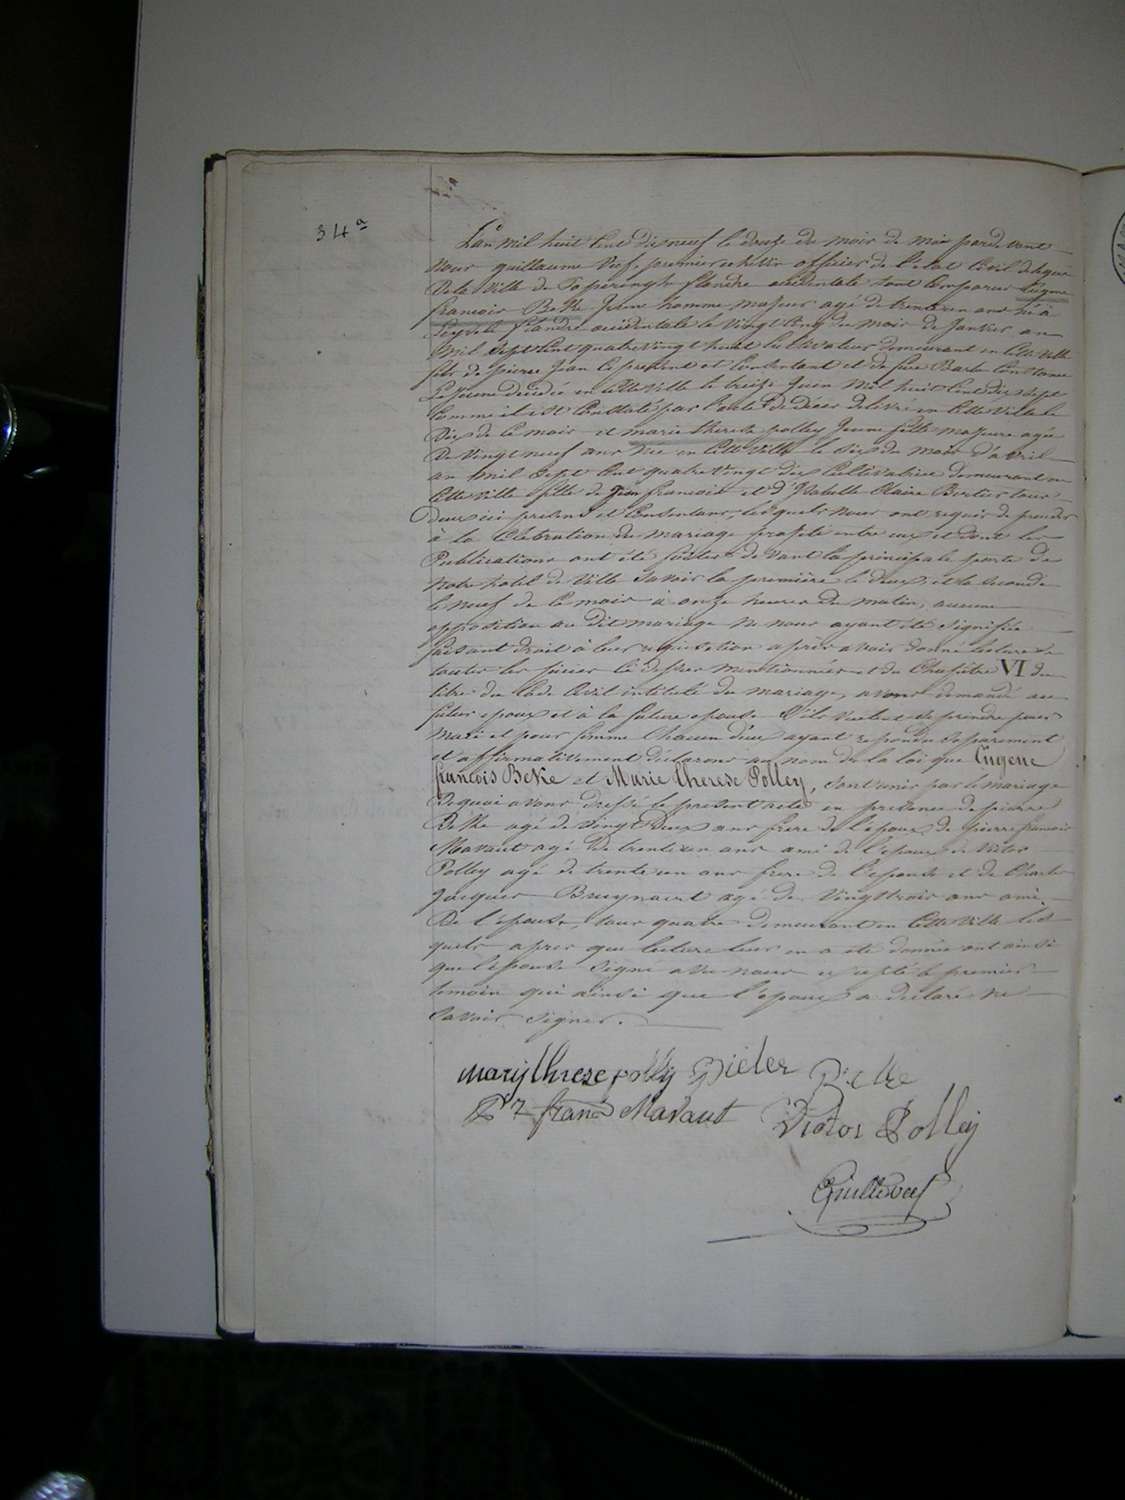 34a
L'an mil huit cent dix neuf le douze du mois de mai par devant
nous guillaume Veef, premier echevin officier de l'etat Civil delegué
De la Ville de Poperinghe flandre occidentale sont Comparus Eugene
francois Beke Jeune homme majeur agé de trente un ans né à
flandre occidentale le Vingt Cinq du mois de Janvier an
Mil Sept Cent quatre vingt huit Cultivateur demeurant en Cette Ville
fils de pierre Jean Ce present et Consentant et de feue Barbe Constance
Le Jeune decedée en cette Ville le treize Juin Mil huit Cent dix sept
Comme il est Constaté par l'acte de décès delivré en Cette Ville le
Dix de Ce mois et marie therese polley Jeune fille majeure agée
De Vingt neuf ans née en Cette Ville le dix du mois d'avril
an Mil Sept Cent quatre Vingt dix Cultivatrice demeurant en
Cette Ville fille de Jean francois et d'Isabelle Claire Bertier tous
deux ici presens et Consentans, lesquels nous ont requis de proceder
à la Celebration du mariage projeté entre eux et dont les
Publications ont été faites devant la principale porte de
notre hotel de Ville Savoir la premiere le deux, et la seconde
le neuf de Ce mois à onze heures du matin, aucune
opposition au dit mariage ne nous ayant été signifiée
faisant droit à leur requisition après avoir donné lecture de
toutes les pieces ci dessus mentionnées et du Chapitre VI du
titre du Code Civil intitulé du mariage, avons demandé au
futur epoux et à la future epouse S'ils veulent se prendre pour
Mari et pour femme Chacun d'eux ayant repondu Separement
et affirmativement declarons au nom de la loi que Eugene
francois Beke et Marie therese Polley, sont unis par le mariage
De quoi avons dressé le present acte en presence de pierre
Bekke agé de Vingt deux ans frere de l'epoux de pierre francois
Mavaut agé de trente un ans ami de l'epoux de Victor
Polley agé de trente un ans frere de l'epouse et de Charles
Jacques Bruynaert agé de Vingt trois ans ami
De l'epouse, tous quatre demeurant en Cette Ville les
quels apres que lecture leur en a été donnée ont ainsi
que l'epouse Signé avec nous excepté le premier
temoin qui ainsi que l'epoux a declaré ne
Savoir Signer.
marij threse polly pieter Bekke
Pr franc Mavaut Victor Polleij
Guille Veef